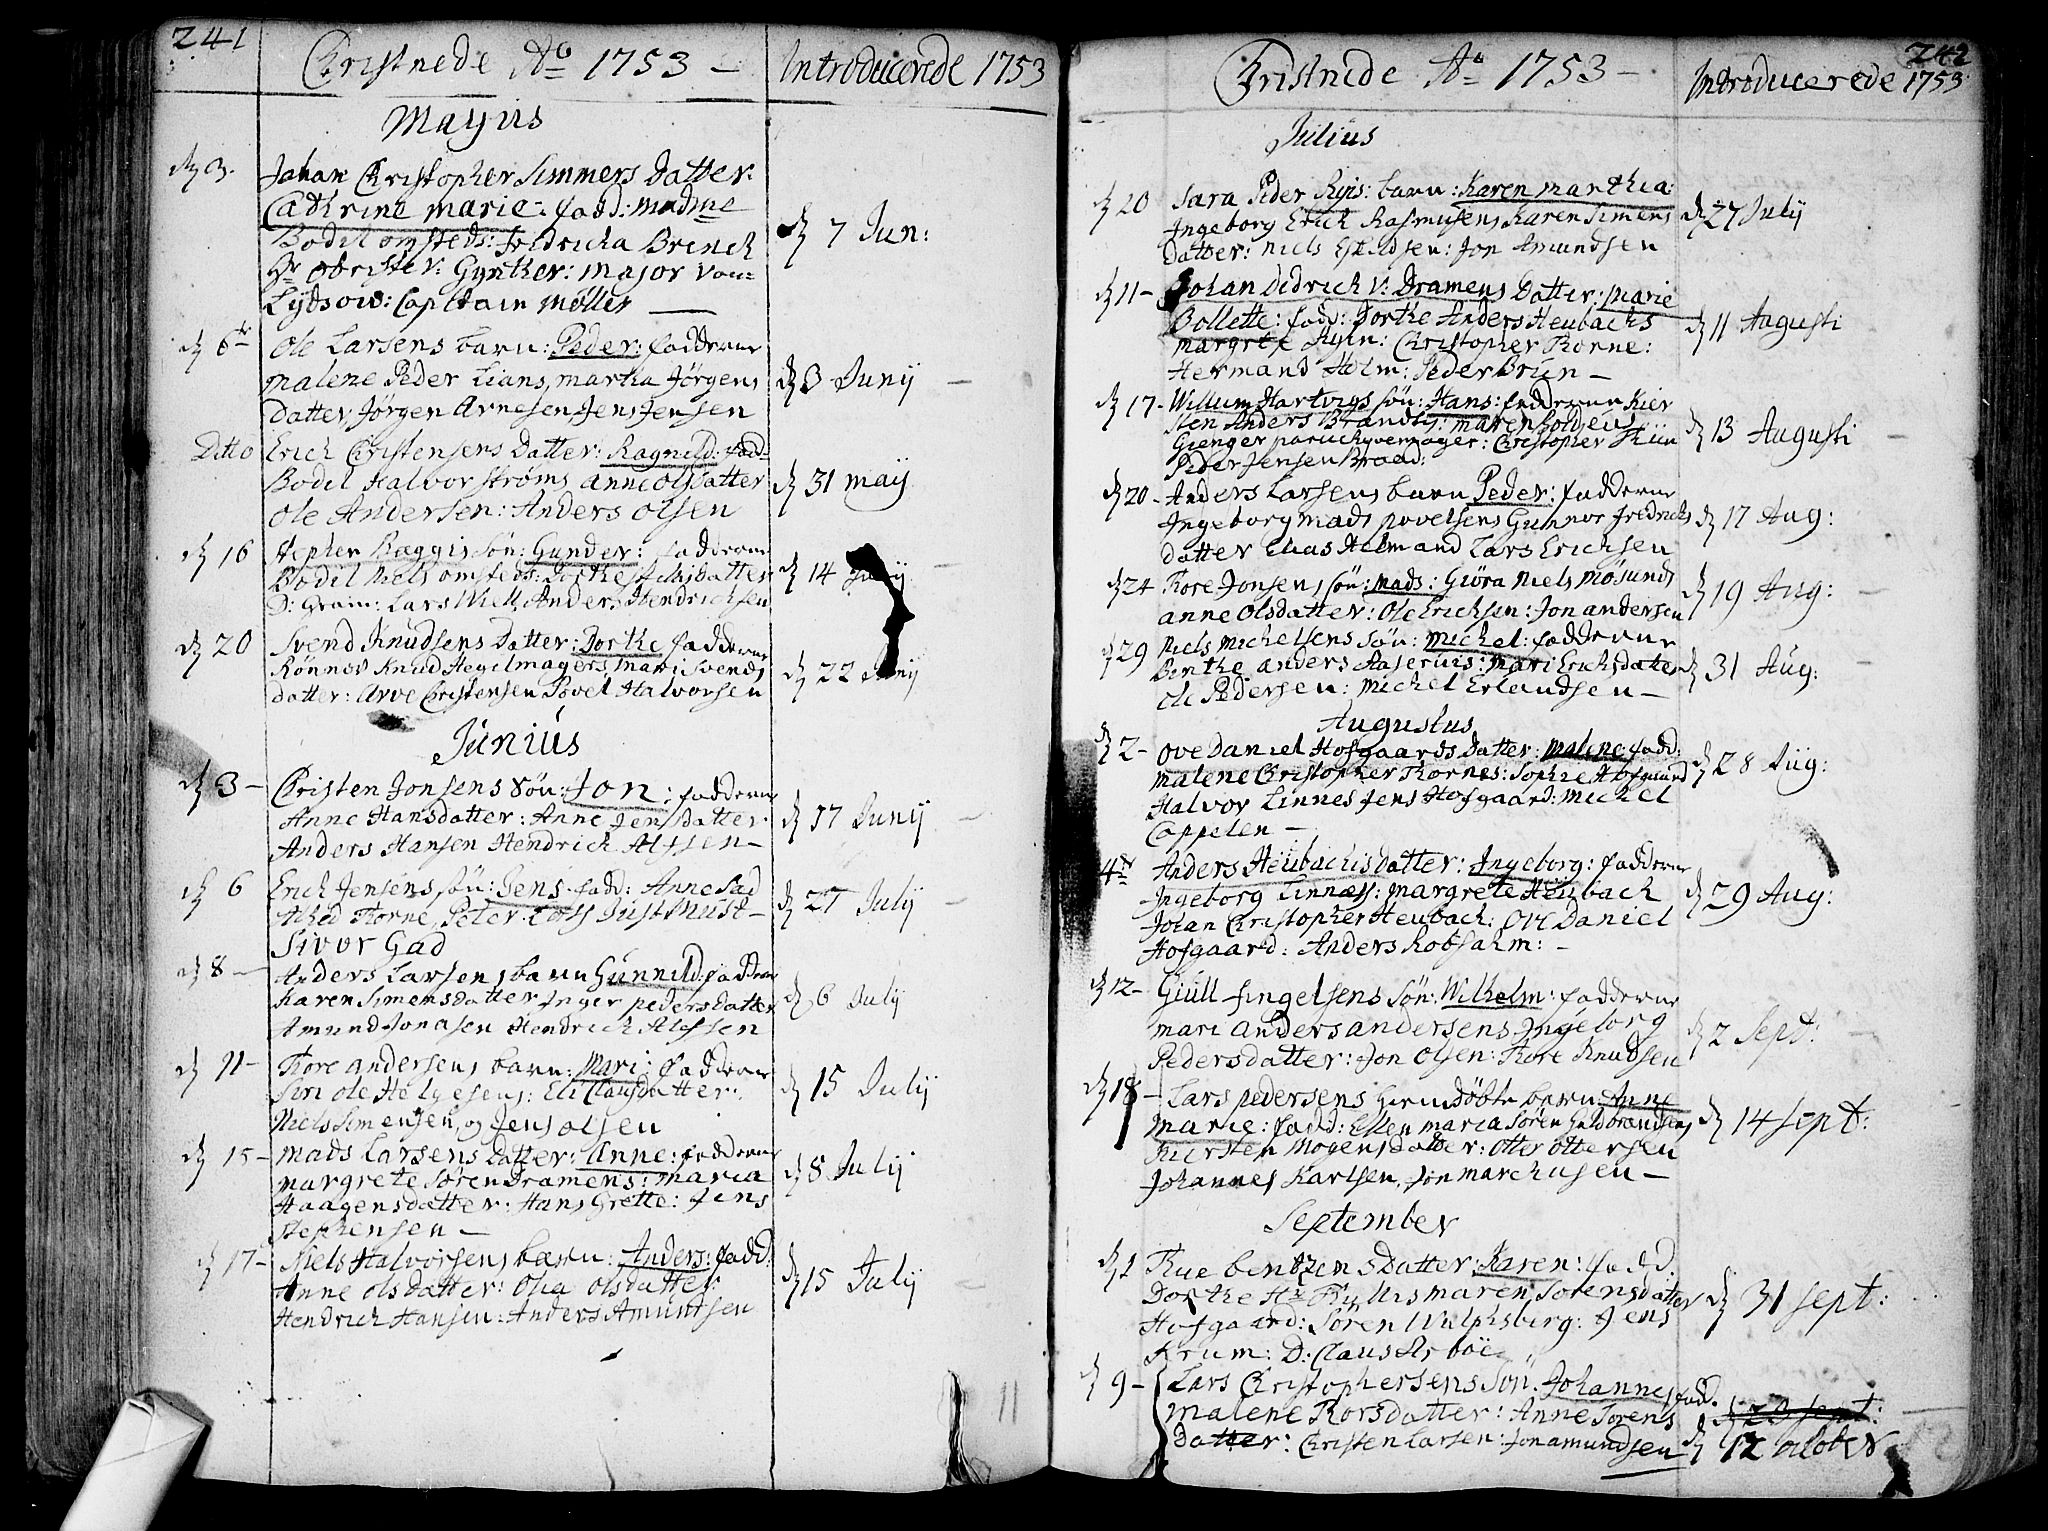 241
Christnede Ao 1753 –
Introducerede 1753
Mayus
d 3.
Johan Christopher Simmers Datter:
Cathrine marie: fadd: madme
Bodil omsteds: fridricha Brinch
Hr obrister: Gynther: major von=
Lÿtsow: Capitain Møller —
d 7 Jun:
d 6te
Ole Larsens barn: Peder: fadderne
malene Peder Lians, martha Jörgens
datter, Jörgen Arnesen, Jens Jensen
d 3 Junij –
Ditto
Erich Christensens Datter: Ragnild: fadd=
Bodil Halvor Strøms anne olsdatter
Ole Andersen: Anders olsen
d 31 maÿ
d 16
Stephen Bæggis Søn: Gunder: fadderne
Bodil Niels omsteds: Dorthe datter
D: Gram: Lars Wiell, Anders Hendrichsen
d 14
d 20
Svend Knudsens Datter: Dorthe fadderne
Rønnov Knud Hegelmagers, mari Svends
datter: Arve Christensen Povel Halvorsen
d 22 Junij
Junius
d 3 –
Christen Jonsens Søn: Jon: fadderne
Anne Hansdatter: Anne Jensdatter
Anders Hansen Hendrich Alssen –
d 17 Junij
d 6
Erich Jensens søn: Jens fadd: Anne Sad
Thorne, Peter Just Must –
Sivor Gad
d 27 Julij
d 8 —
Anders Larsens barn Gunnild: fadderne
Karen Simensdatter Inger pedersdatter
Amund Jonasen Hendrich Alssen
d 6 Julij
d 11 –
Thore andersens barn: Mari: fadderne
Siri ole Helgesens: Eli Clausdatter:
Niels Simensen, og Jens olsen
d 15 Julij
d 15 –
mads Larsens Datter: Anne: fadderne
margrete Søren Dramens: maria
Haagensdatter: Hans Grette: Jens
Stephensen —
d 8 Julij
d 17 –
Niels Halvorsens barn: Anders: fadd:
Anne olsdatter: Olia olsdatter
Hendrich Hansen: Anders Amundsen
d 15 Julij
11
242
Christnede Ao 1753 –
Introducerede 1753
Julius
d 20
Sara Peder Ryis: barn: Karen marthia:
Ingeborg Erich Rasmusens Karen Simens
datter: niels Eskildsen: Jon Amundsen
d 27 July
d 11 –
Johan Didrich v: Dramens Datter: Marie
Bollette: fadd: Dorthe Anders Heubachs
margrete Ryin: Christopher Thorne:
Hermand Holm: Peder Brün –
d 11 Augusti
d 17 –
Willum Hartvigs søn: Hans: fadderne Kier
sten Anders Brandts: maren boldens
Gienger paruchvemager: Christopher
Peder Jensen Braad:
d 13 Augusti –
d 20 –
Anders Larsens barn Peder: fadderne
Ingeborg mads povelsens Gunnor fredrichs
datter Elias Helmand Lars Erichsen
d 17 Aug:
d 24
Thore Jonsens søn: mads: Giöra niels mösunds
anne olsdatter: Ole Erichsen: Jon andersen
d 19 Aug:
d 29
Niels Michelsens søn: Michel: fadderne
Benthe anders Aaseruis: mari Erichsdatter
ole Pedersen: Michel Erlandsen –
d 31 Aug:
Augustus
d 2 –
Ove Daniel Hofgaards datter: malene: fadd:
malene Christopher Thornes: Sophie Hofgaard
Halvor Linnes Jens Hofgaard: Michel
Cappelen –
d 28 Aug:
4te
Anders Heubachs datter: Ingeborg: fadderne
Ingeborg Linnæs: margrete Heubach
Johan Christopher Heubach: Ove Daniel
Hofgaard: Anders Robsahm: –
d 29 Aug:
d 12 –
Giull Ingelsens søn: Wilhelm: fadderne
mari anders andersens Ingeborg
Pedersdatter: Jon Olsen: Thore Knudsen
d 2 Sept:
d 18 –
Lars pedersens hiemdöbte barn: Anne
marie: fadd: Ellen maria Søren Guldbrandsens
Kiersten Mogensdatter: Otte ottersen
Johannes Karlsen, Jon marchusen –
d 14 Sept:
September
d 1
Rue bentzens Datter: Karen: fadd.
Dorthe Hr maren Sorensdatter
Hofgaard: Søren Wulphsberg: Jens
Krum: D: Claus Asböe
d 31 sept:
d 9 –
Lars Christophersens søn: Johannes fadd.
malene Thorsdatter: Anne Sørens
datter: Christen Larsen: Jon amundsen
d 23 sept:
d 12 october